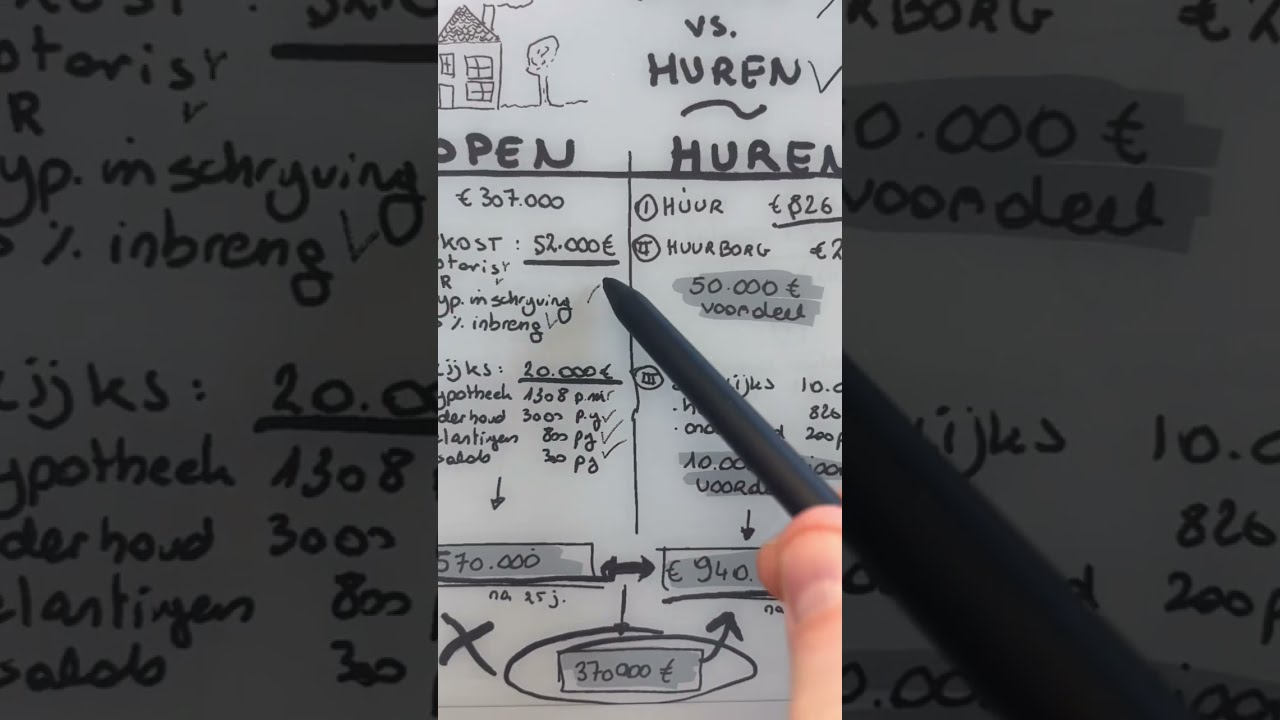 vs.
HUREN
OPEN
HUREN
€ 307.000
KOST : 52.000 €
otaris
R
yp. inschryving
% inbreng
IJKS : 20.000 €
ypotheek 1308 p.m
derhoud 3000 p.y
elantingen 800 py
saldo 300 py
570.000
na 25 j.
I HUUR € 826
II HUURBORG € 2
50.000 €
voordeel
III IJKS 10.0
826
200 p
10.00
VOORDE
€ 940.
na
370000 €